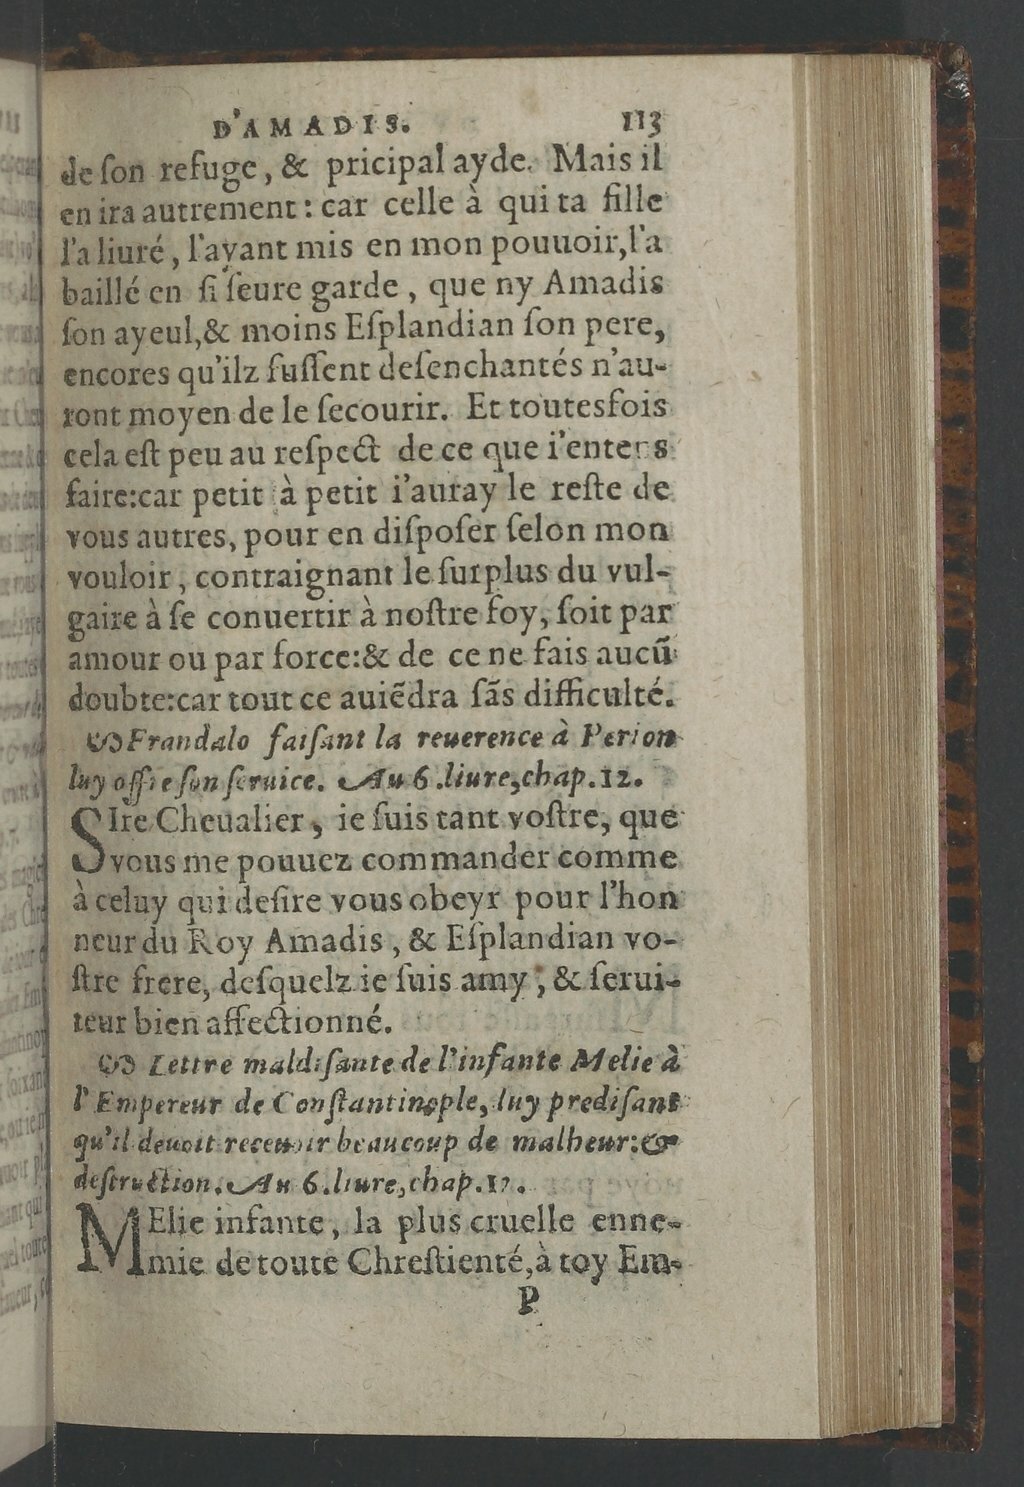 D'AMADIS. 113
de ſon refuge, & pricipal ayde. Mais il
en ira autrement : car celle à qui ta fille
l'a liuré, l'ayant mis en mon pouuoir, l'a
baillé en ſi ſeure garde, que ny Amadis
ſon ayeul, & moins Eſplandian ſon pere,
encores qu'ilz fuſſent deſenchantés n'au-
ront moyen de le ſecourir. Et toutesfois
cela eſt peu au reſpect de ce que i'entens
faire: car petit à petit i'auray le reſte de
vous autres, pour en diſpoſer ſelon mon
vouloir, contraignant le ſurplus du vul-
gaire à ſe conuertir à noſtre foy, ſoit par
amour ou par force: & de ce ne fais aucũ
doubte: car tout ce auiẽdra ſãs difficulté.
Frandalo faiſant la reuerence à Perion
luy offre ſon ſeruice. Au 6. liure, chap. 12.
SIre Cheualier, ie ſuis tant voſtre, que
vous me pouuez commander comme
à celuy qui deſire vous obeyr pour l'hon
neur du Roy Amadis, & Eſplandian vo-
ſtre frere, deſquelz ie ſuis amy, & ſerui-
teur bien affectionné.
Lettre maldiſante de l'infante Melie à
l'Empereur de Conſtantinople, luy prediſant
qu'il deuoit receuoir beaucoup de malheur: &
deſtruction. Au 6. liure, chap. 17.
MElie infante, la plus cruelle enne-
mie de toute Chreſtienté, à toy Em-
P